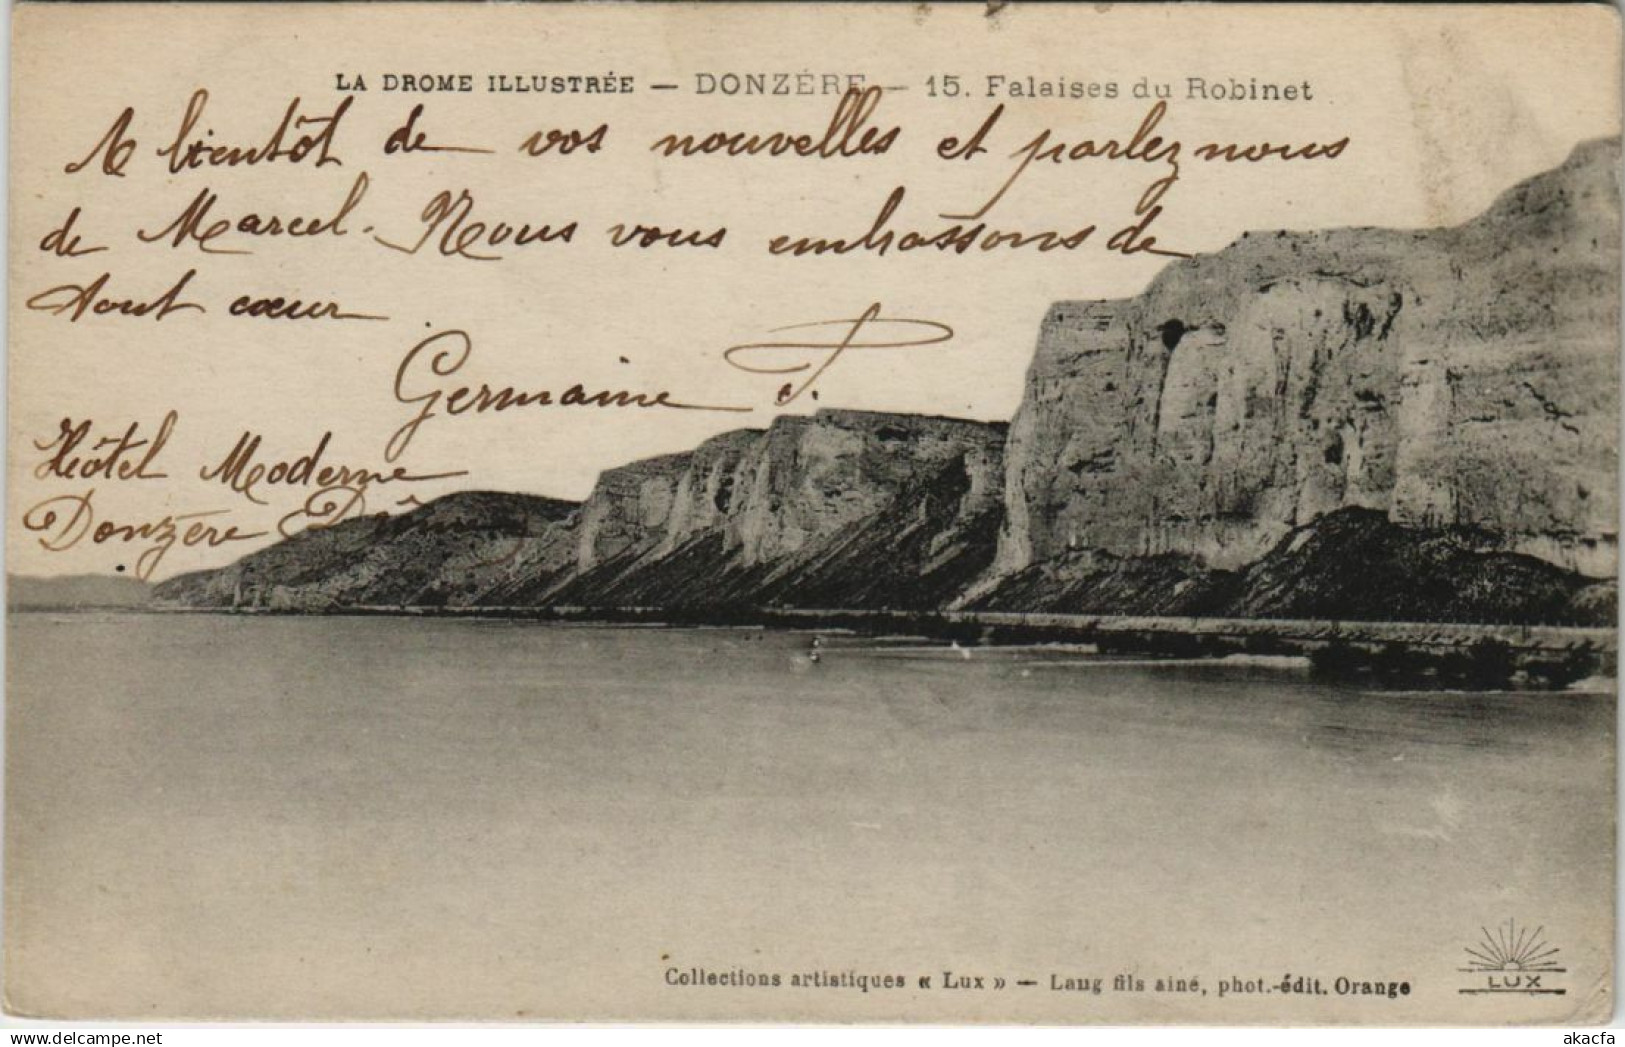 LA DROME ILLUSTRÉE — DONZÈRE — 15. Falaises du Robinet
A bientôt de vos nouvelles et parlez nous
de Marcel. Nous vous embrassons de
tout cœur
Germaine
Hôtel Moderne
Donzère Drôme
Collections artistiques « Lux » — Laug fils ainé, phot.-édit. Orange
LUX
akacfa